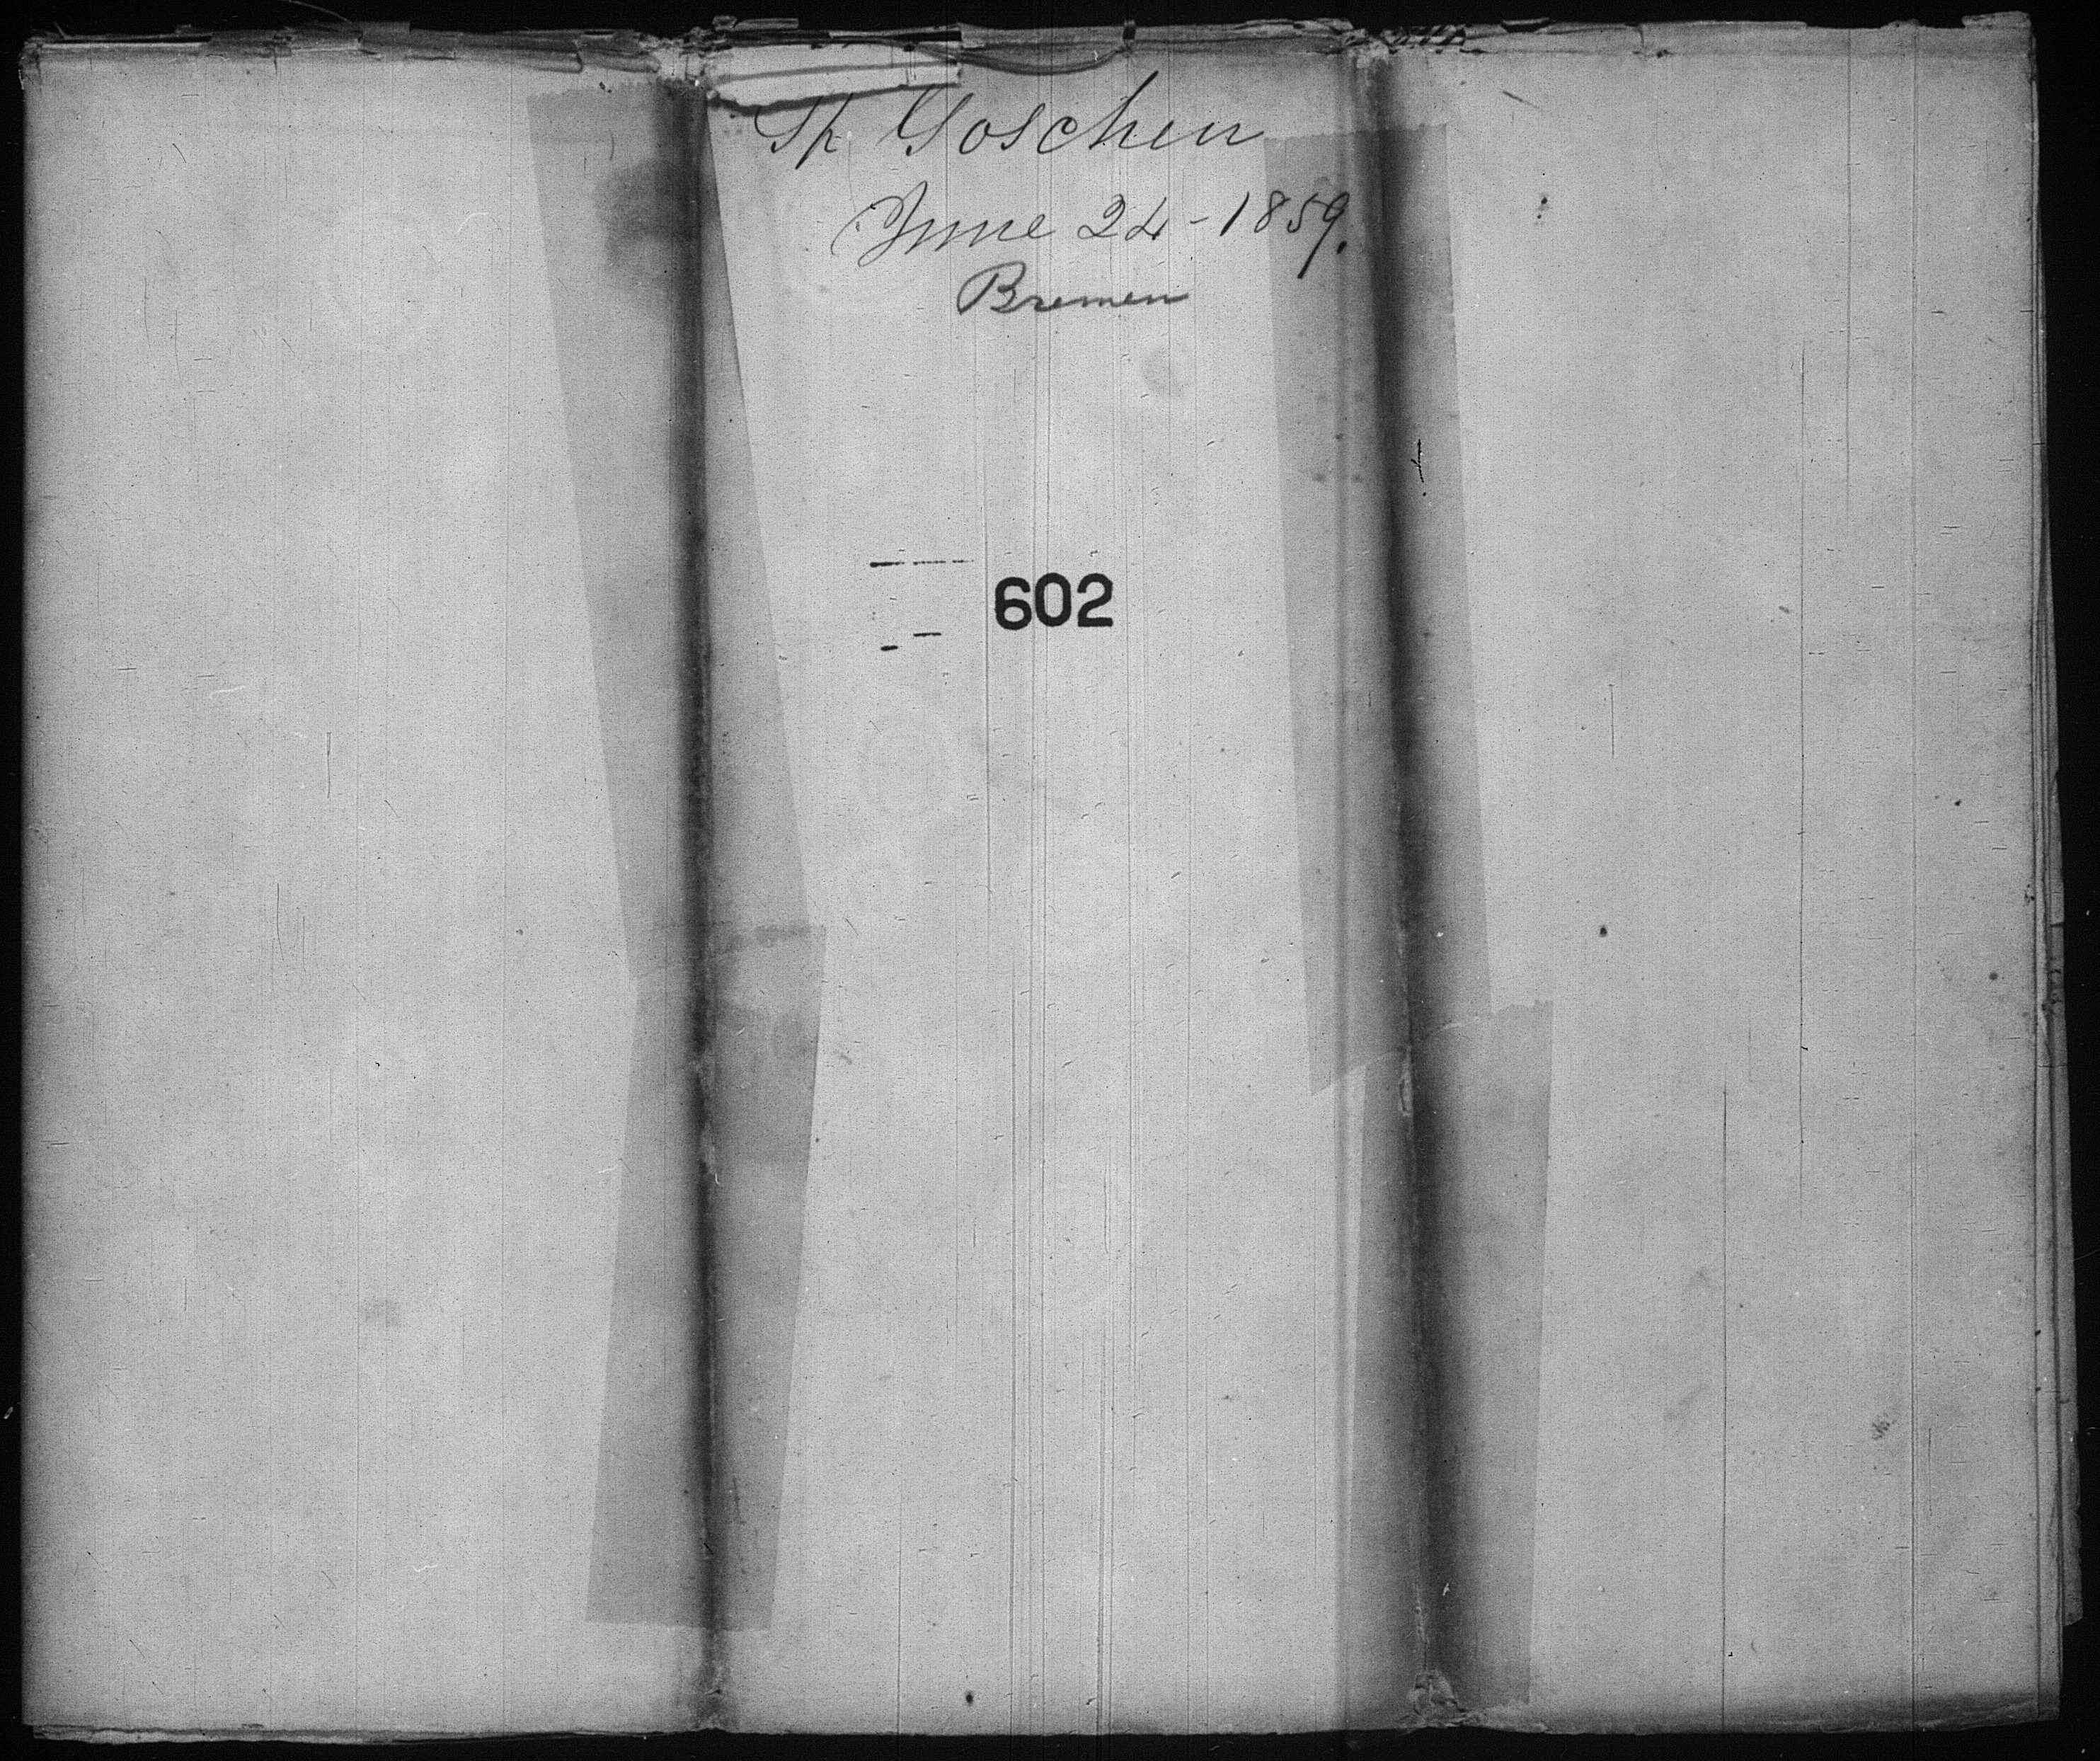 Sh Goschen
June 24-1859.
Bremen
602